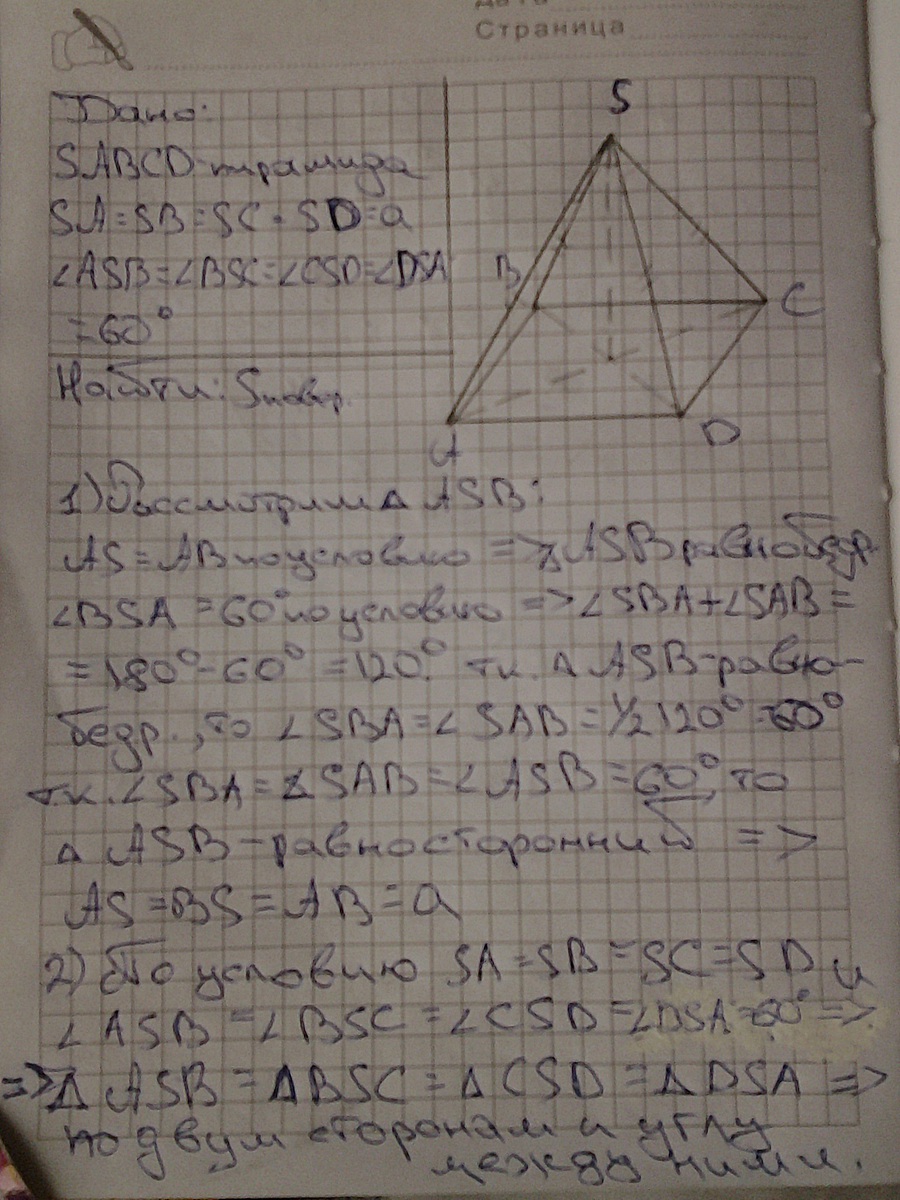 Страница
Дано:
SABCD-пирамида
SA=SB=SC=SD=a
∠ASB=∠BSC=∠CSD=∠DSA
=60°
Найти: Sповер.
S
B
C
A
D
1) Рассмотрим △ ASB:
AS=AB по условию => △ASB равнобедр.
∠BSA =60° по условию => ∠SBA+∠SAB=
=180°-60° =120° т.к. △ ASB-равно-
бедр., то ∠SBA=∠SAB=1/2 120°=60°
т.к. ∠SBA=∠SAB=∠ASB=60°, то
△ ASB-равносторонний =>
AS=BS=AB=a
2) По условию SA=SB=SC=SD и
∠ASB=∠BSC=∠CSD=∠DSA=60° =>
=>△ ASB=△BSC=△CSD=△DSA =>
по двум сторонам и углу
между ними.